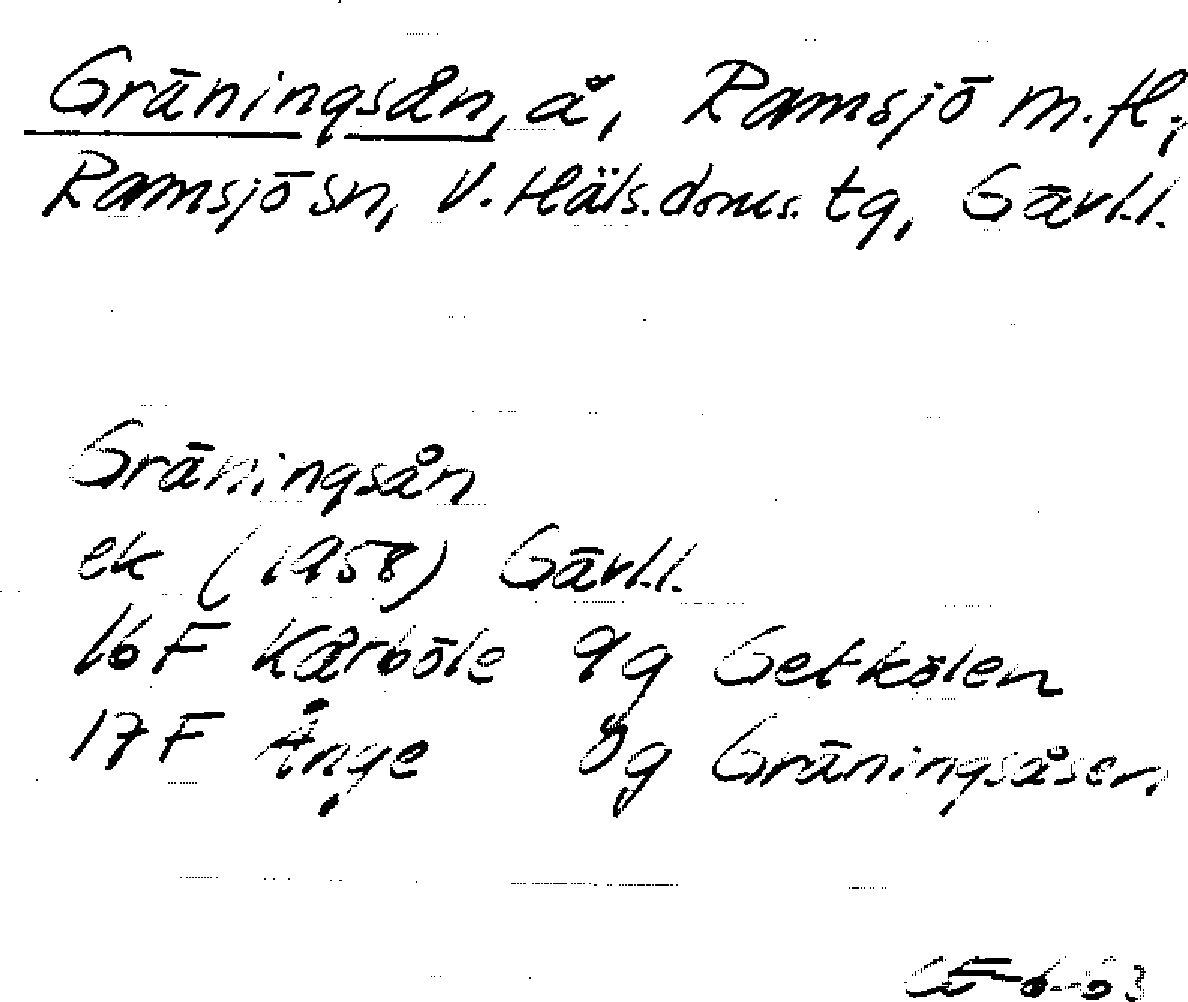 Gräningsån, å, Ramsjö m.fl.,
Ramsjö sn, V. Häls. doms. tg, Gävl.l.
Gräningsån
ek (1958) Gävl.l.
16 F Kårböle 9g Getkölen
17 F Ånge 0g Gräningsåsen